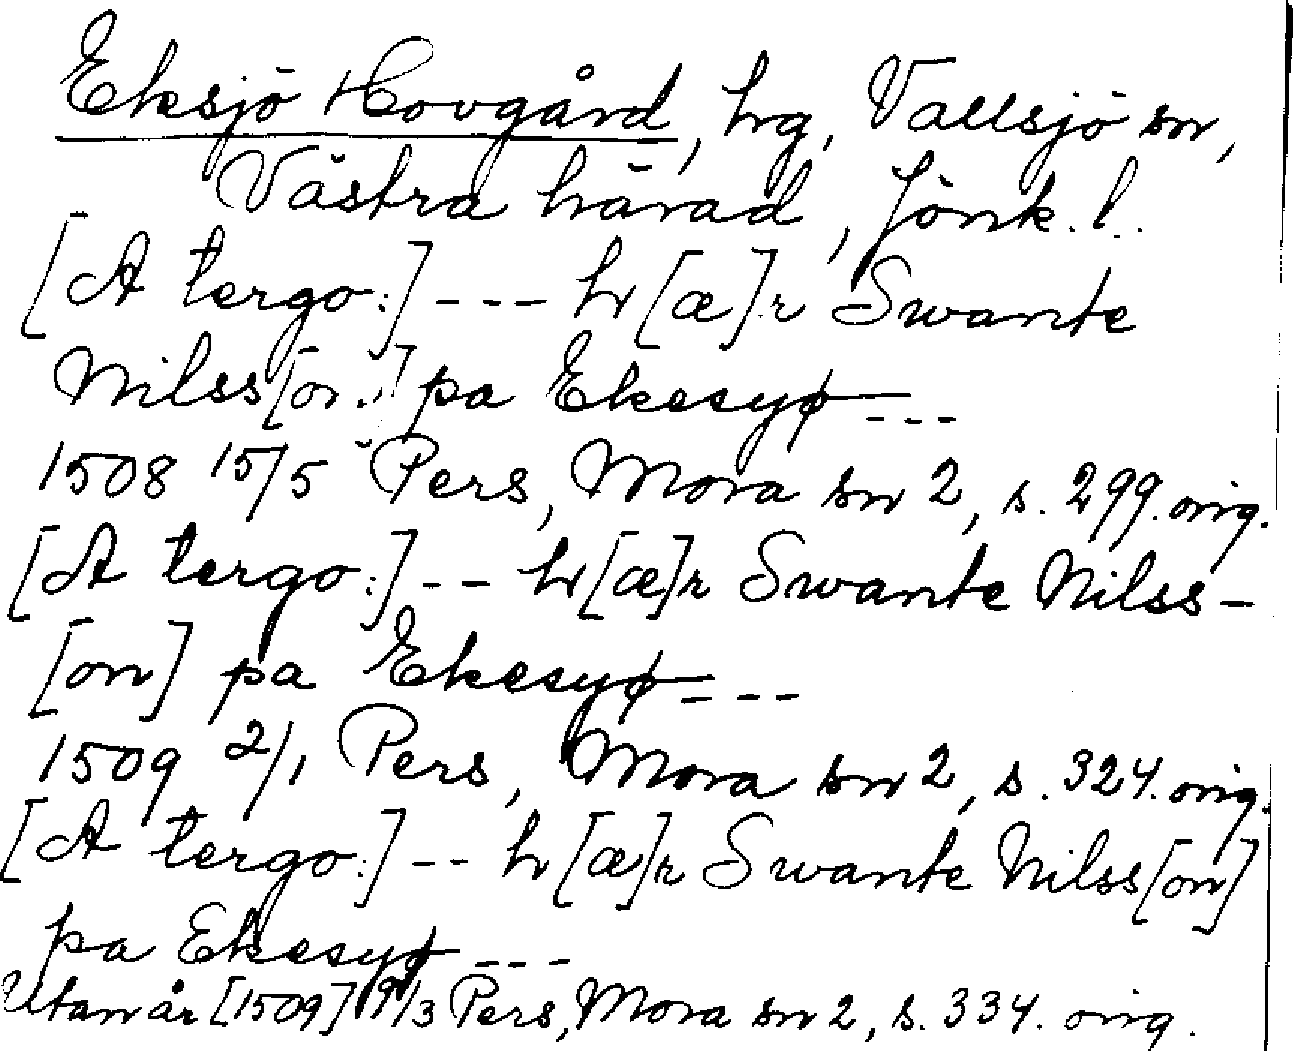 Eksjö Hovgård, hg, Vallsjö sn,
Västra härad, Jönk. l.
[A tergo:] --- h[æ]r Swante
Nilss[on:] pa Ekesyø ---
1508 15/5 Pers, Mora sn 2, s. 299. orig.
[A tergo:] -- h[æ]r Swante Nilss-
[on] pa Ekesyø ---
1509 2/1 Pers, Mora sn 2, s. 324. orig.
[A tergo:] -- h[æ]r Swante Nilss[on]
pa Ekesyø ---
Utan år [1509] 19/3 Pers, Mora sn 2, s. 334. orig.